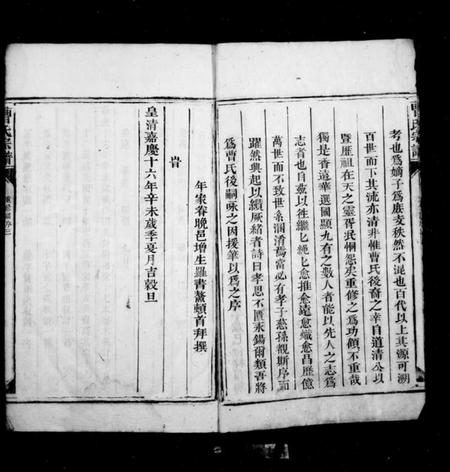 曹氏宗譜
考也爲嫡子爲庶支秩然不混也百代以上其源可溯
百世而下其流亦清非惟曹氏後裔之幸自道清公以
暨歷祖在天之靈胥恫怨矣重修之爲功顧不重哉
獨是香遠華選國顯九有之數人者能以先人之志爲
志者也自茲以往繼繼繩繩愈推愈遠愈熾愈昌歷億
萬世而不致世系溷淆焉當必有孝子慈孫觀斯序而
躍然興起以纘厥緒者詩曰孝思不匱永錫爾類吾將
爲曹氏後嗣咏之因援筆以爲之序
年家眷晚邑增生羅書鰲頓首拜撰
旹
皇清嘉慶十六年辛未歲季夏月吉穀旦
曹氏宗譜